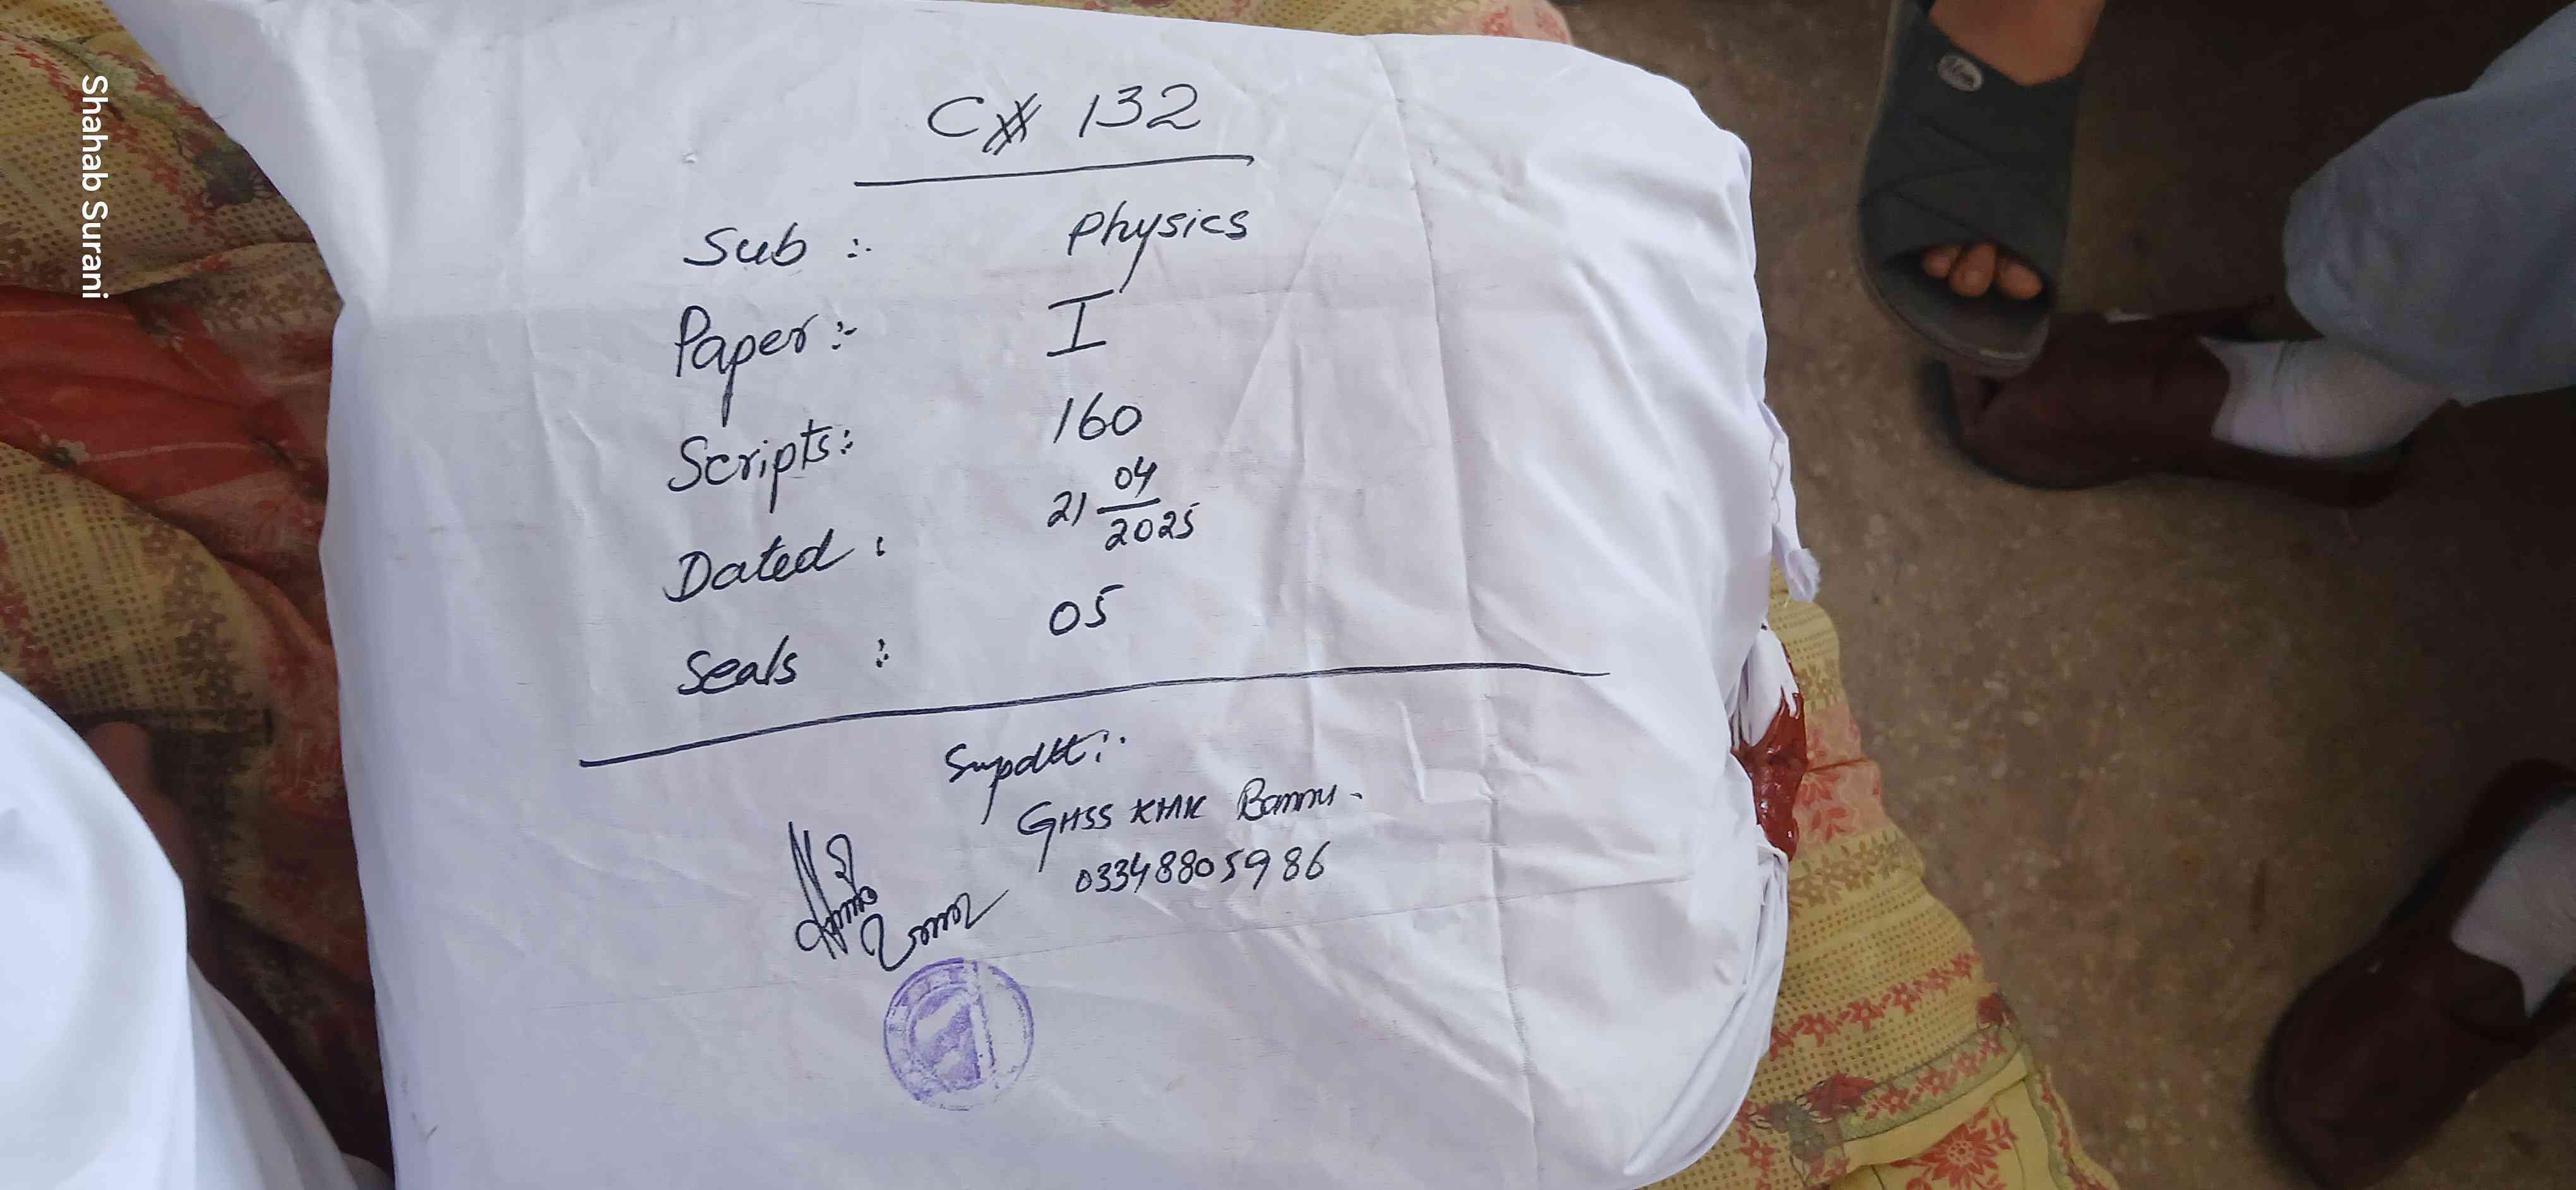 C# 132
Sub :- Physics
Paper :- I
Scripts :- 160
Dated : 21 04/2025
Seals :- 05
Supdtt :-
GHSS KMK Bannu -
03348805986
Shahab Surani